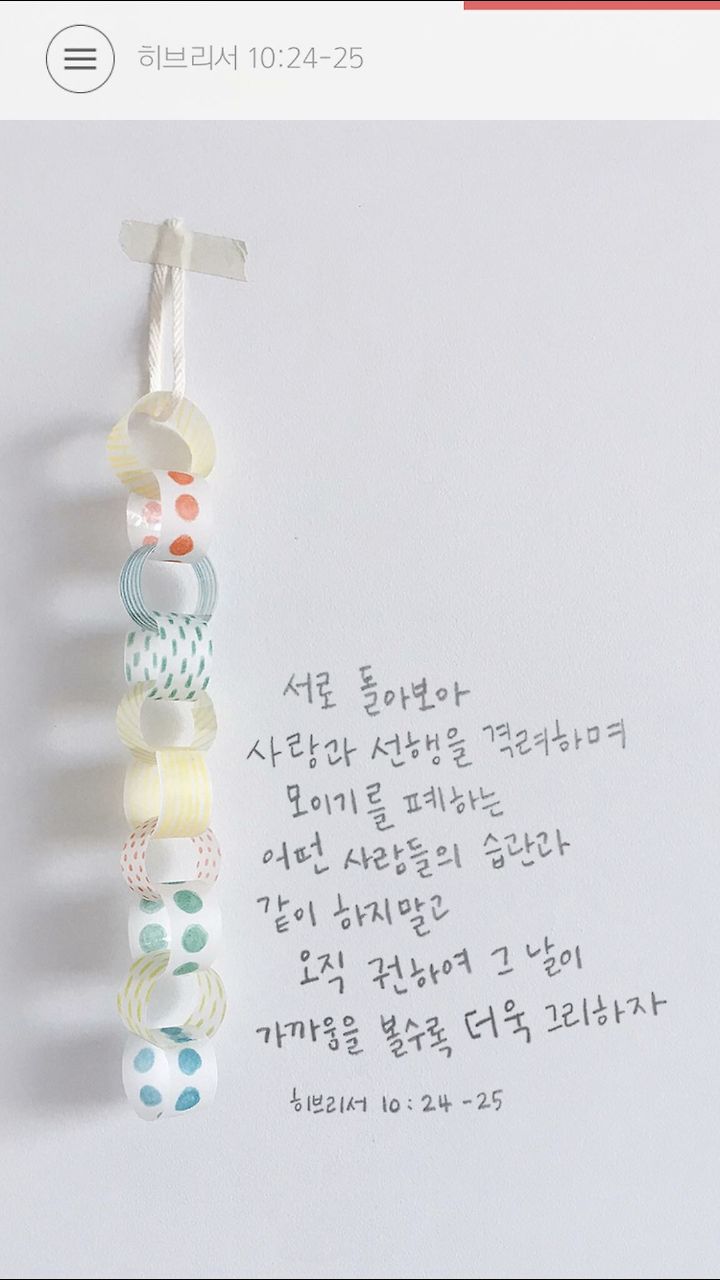 히브리서 10:24-25
서로 돌아보아
사랑과 선행을 격려하며
모이기를 폐하는
어떤 사람들의 습관과
같이 하지말고
오직 권하여 그 날이
가까움을 볼수록 더욱 그리하자
히브리서 10:24-25